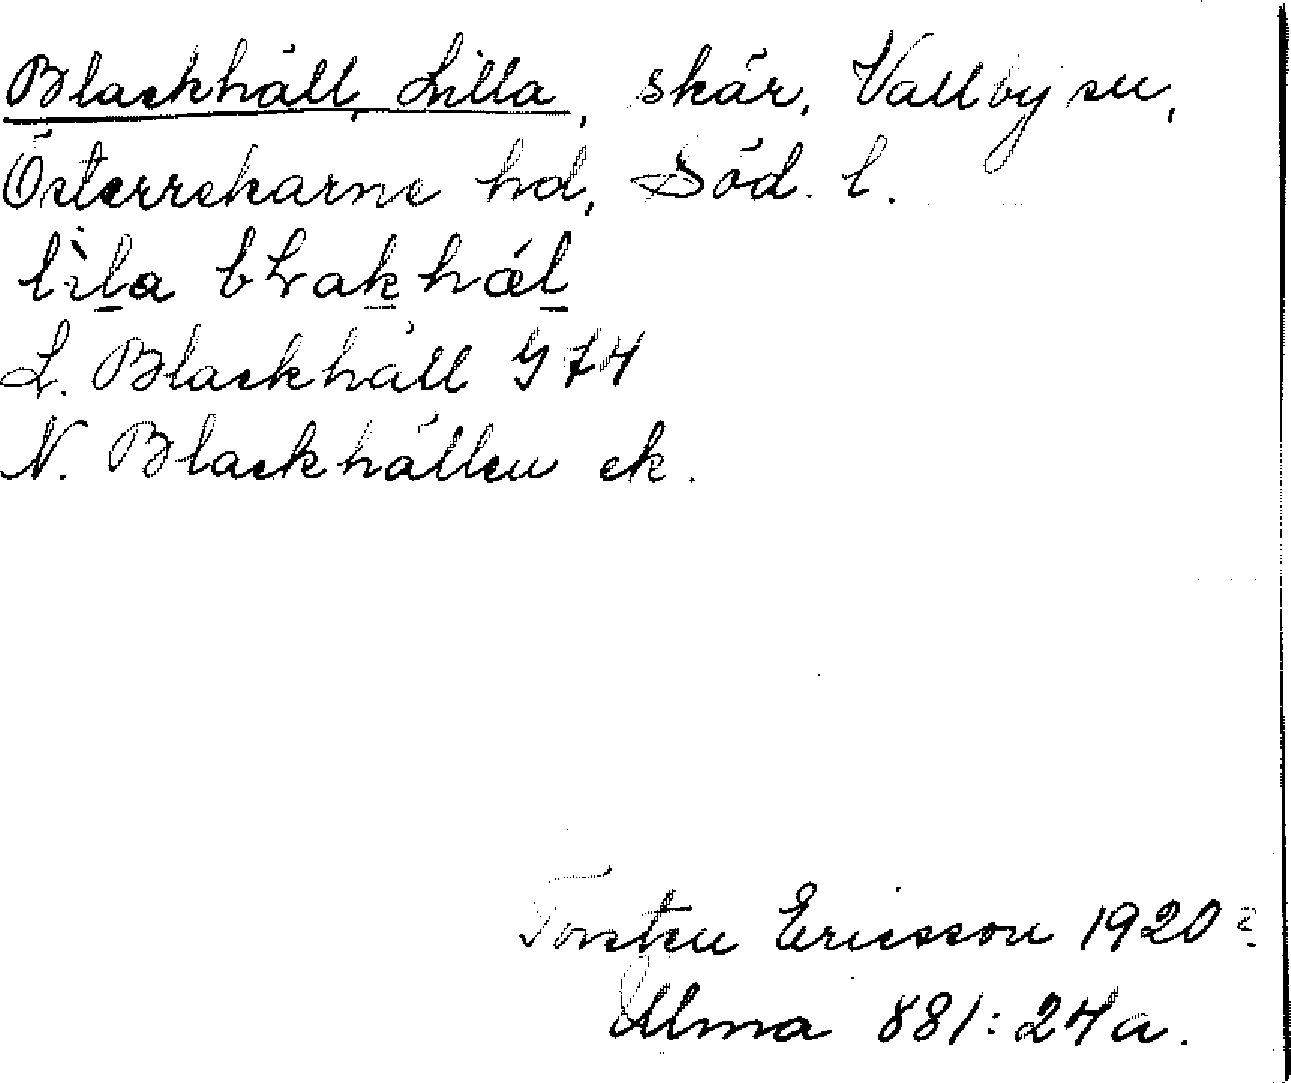 Blackhäll, Lilla, skär, Vallby sn,
Österrekarne hd, Söd. l.
lìla bLakhǽl
L. Blackhäll G74
N. Blackhällen ek.
Torsten Ericsson 1920?
Ulma 881:24a.